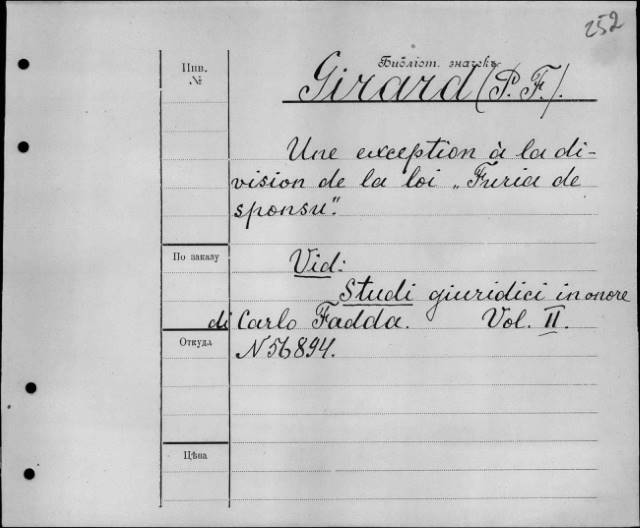 252
Библіот. значекъ
Инв.
№
Girard (P. F.).
Une exception à la di-
vision de la loi „Furia de
sponsu".
По заказу
Vid:
Studi giuridici in onore
di Carlo Fadda. Vol. II.
Откуда
N 56894.
Цѣна